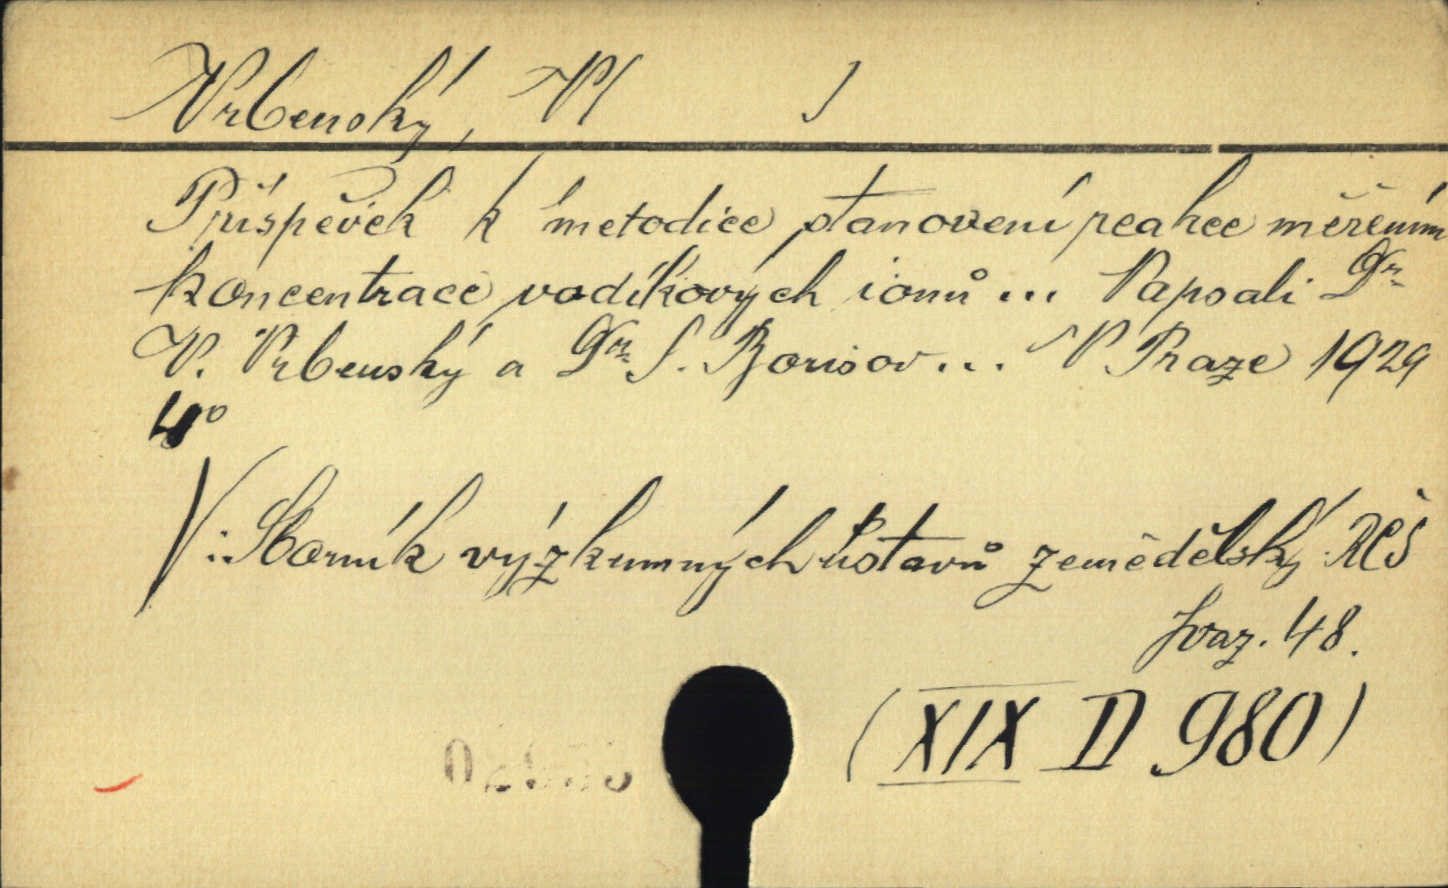 Vrbenský, Vl J
Příspěvek k metodice stanovení reakce měřením
koncentrace vodíkových ionů ... Napsali Dr
V. Vrbenský a Dr S. Borisov ... V Praze 1929
4°
V: Sborník výzkumných ústavů zemědělský. RČS
svaz. 48.
(XIX D 980)